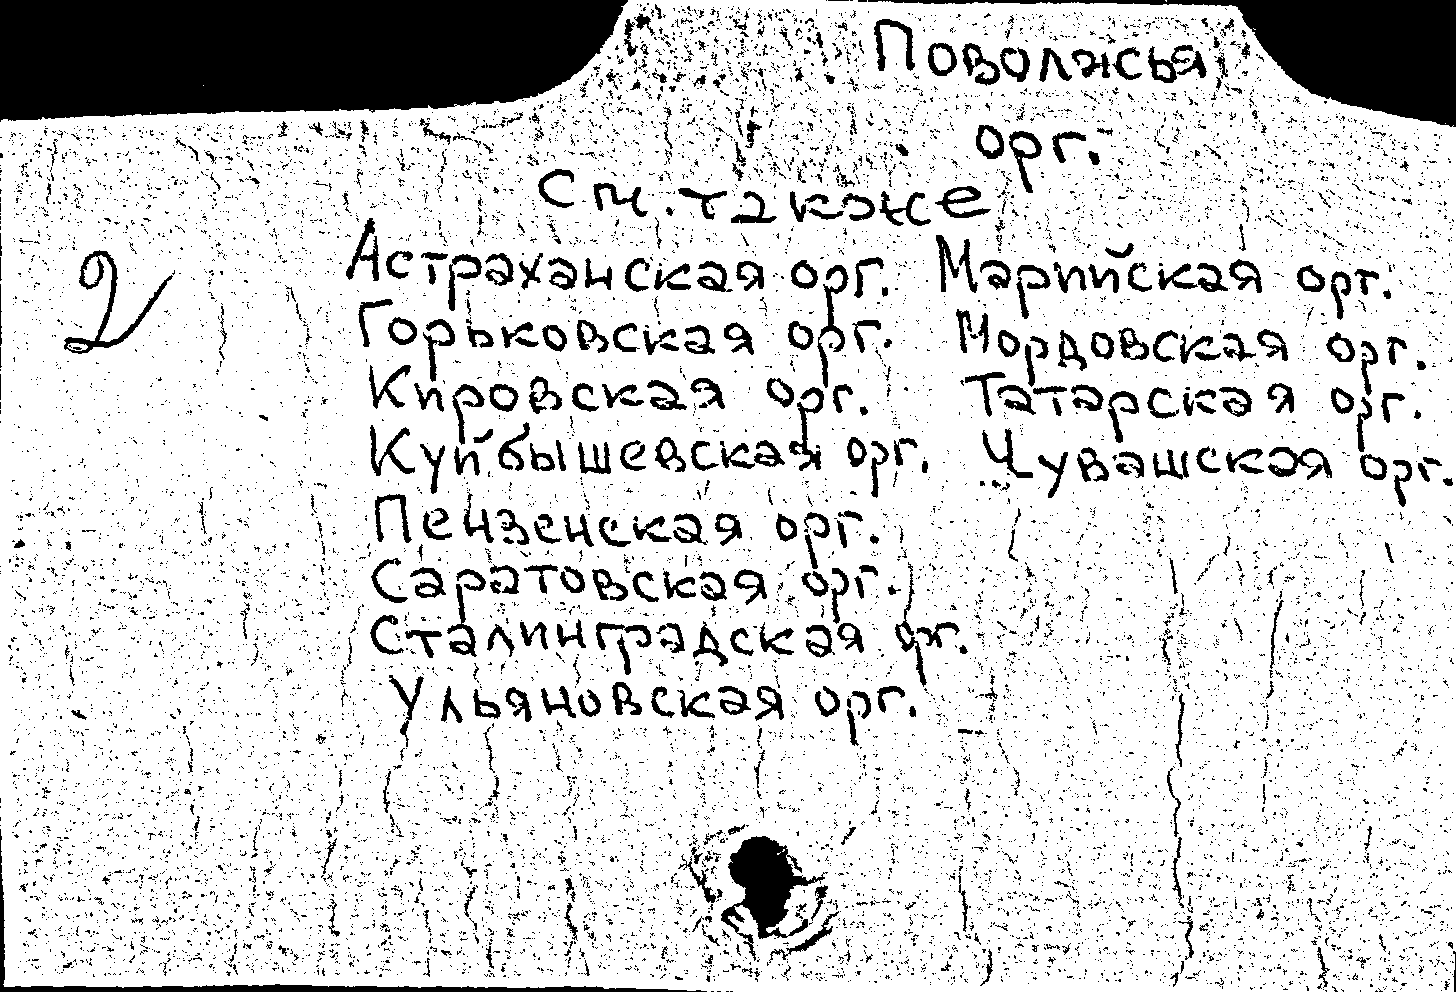 Поволжья
орг.
См. также
2
Астраханская орг. Марийская орг.
Горьковская орг. Мордовская орг.
Кировская орг. Татарская орг.
Куйбышевская орг. Чувашская орг.
Пензенская орг.
Саратовская орг.
Сталинградская орг.
Ульяновская орг.